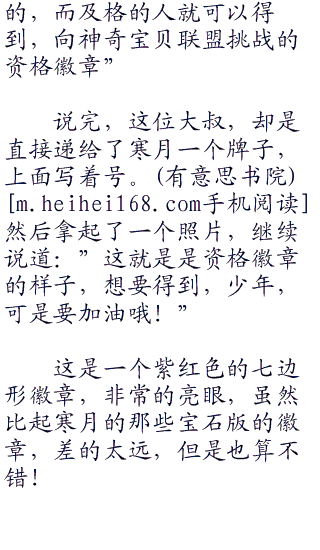 的，而及格的人就可以得
到，向神奇宝贝联盟挑战的
资格徽章”
说完，这位大叔，却是
直接递给了寒月一个牌子，
上面写着号。(有意思书院)
[m.heihei168.com手机阅读]
然后拿起了一个照片，继续
说道：”这就是是资格徽章
的样子，想要得到，少年，
可是要加油哦！”
这是一个紫红色的七边
形徽章，非常的亮眼，虽然
比起寒月的那些宝石版的徽
章，差的太远，但是也算不
错！